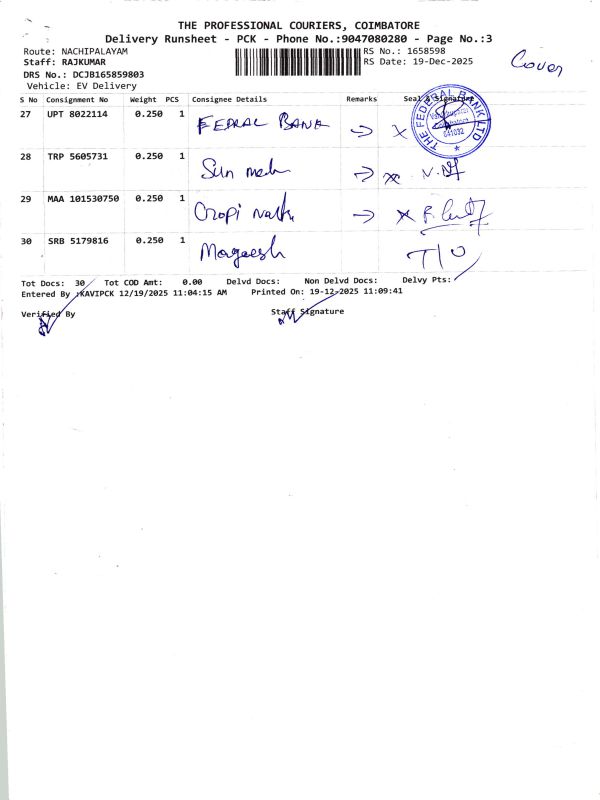 THE PROFESSIONAL COURIERS, COIMBATORE
Delivery Runsheet - PCK - Phone No.:9047080280 - Page No.:3
Route: NACHIPALAYAM RS No.: 1658598
Staff: RAJKUMAR RS Date: 19-Dec-2025
Cover
DRS No.: DCJB165859803
Vehicle: EV Delivery
S No Consignment No Weight PCS Consignee Details Remarks Seal & Signature
27 UPT 8022114 0.250 1 FEDRAL BANK
THE FEDERAL BANK LTD
641032
28 TRP 5605731 0.250 1 Sun
29 MAA 101530750 0.250 1
30 SRB 5179816 0.250 1 Mageesh T/O
Tot Docs: 30 Tot COD Amt: 0.00 Delvd Docs: Non Delvd Docs: Delvy Pts:
Entered By :KAVIPCK 12/19/2025 11:04:15 AM Printed On: 19-12-2025 11:09:41
Verified By Staff Signature